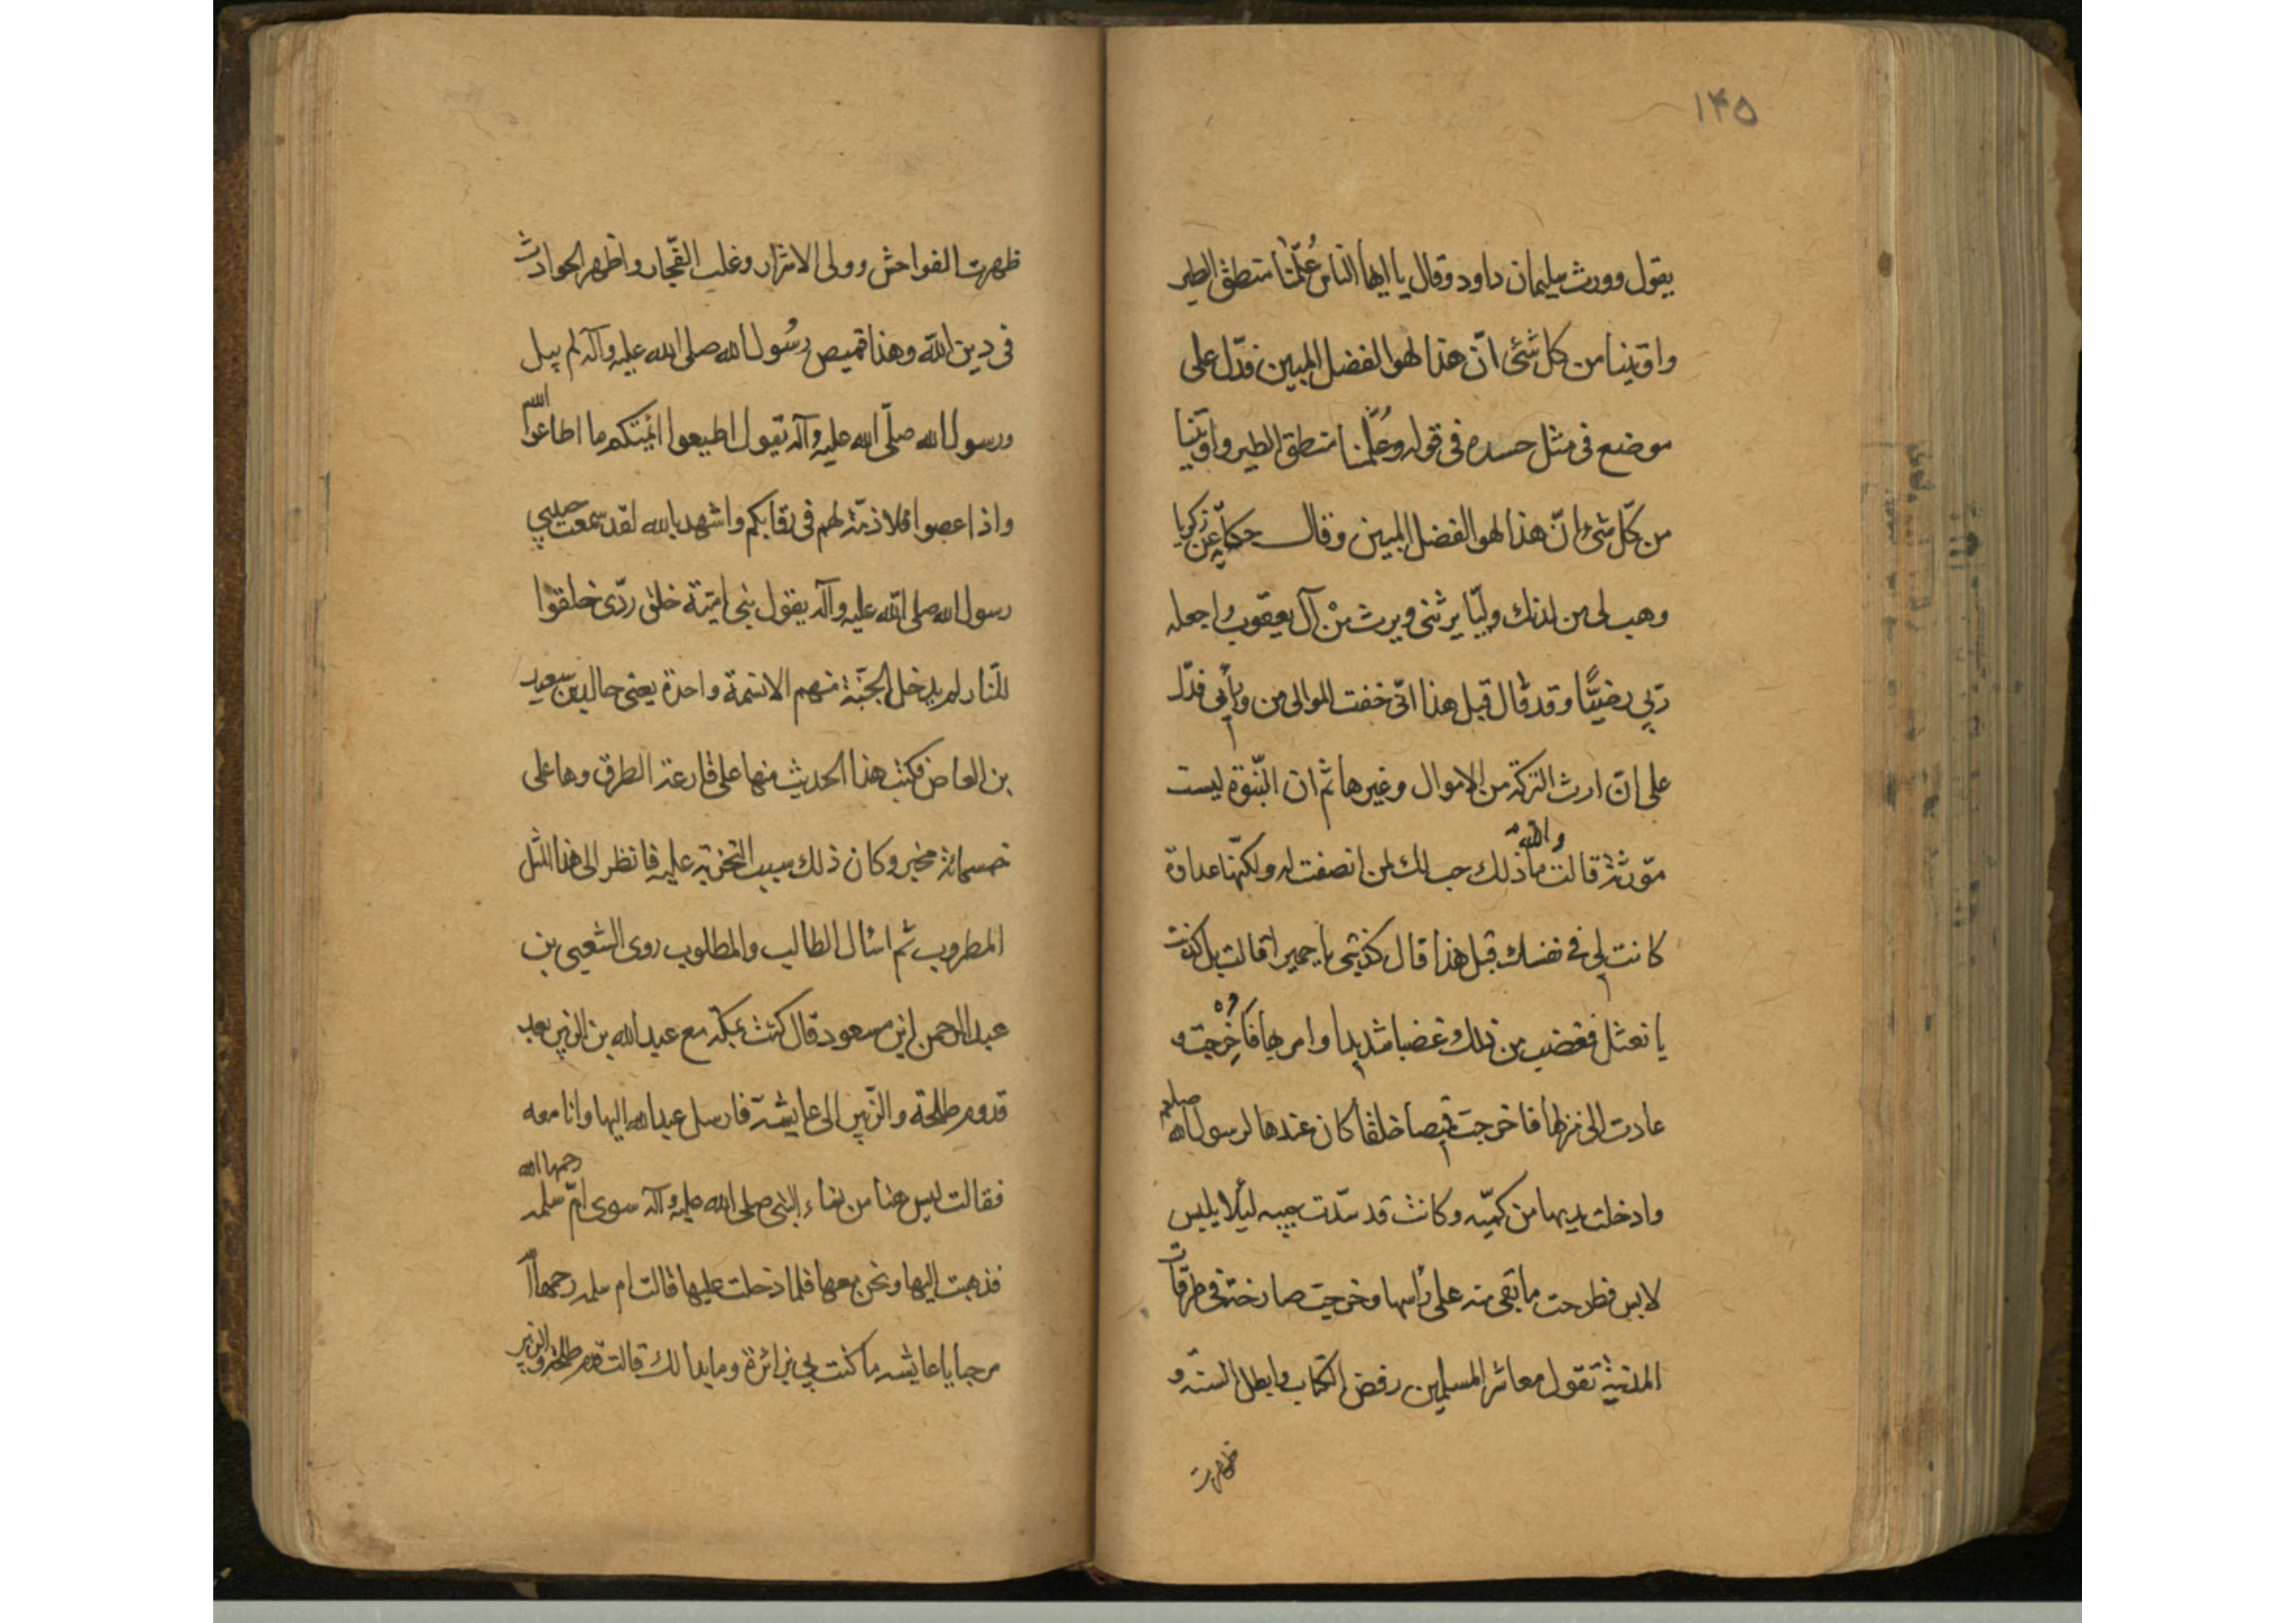 ۱۴۵
يقول وورث سليمان داود وقال يا ايها الناس عُلّمنا منطق الطير
واوتينا من كل شئ انّ هذا لهو الفضل المبين فدّل على
موضع فى مثل حسده فى قوله وعُلّمنا منطق الطير واوتينا
من كّل شئ انّ هذا لهو الفضل المبين وقال حكاية عن زكريا
وهب لى من لدنك وليّا يرثنى ويرث منْ آل يعقوب واجعله
ربّى رضيًّا وقد قال قبل هذا انّى خفت الموالى من ورأيى فدّل
على انّ ارث التركة من الاموال وغيرها ثم ان النّبوة ليست
مورثة قالت والله ما ذلك حب لك لمن انصفت له ولكنّها عداوة
كانت لى فى نفسك قبل هذا قال كذبتى يا حميرا قالت بل كذبت
يا نعثل فغضب من ذلك غضبا شديدا وامر بها فاُخْرِجت و
عادت الى منزلها فاخرجت قميصا خلقا كان عندها لرسول الله صلعم
وادخلت يديها من كميّه وكانت قد سّدت جيبه لئلا يلبس
لابس فطرحت ما بقى منه على رأسها وخرجت صارخة فى طرقات
المدنية تقول معاشر المسلمين رفض الكتاب وابطل السنّه و
ظهرت
ظهرت الفواحش وولى الاشرار وغلب الفّجار واظهر الحوادث
فى دين اللّه وهذا قميص رسُول الله صلى الله عليه وآله لم يبل
ورسول الله صلّى الله عليه وآله يقول اطيعوا ائمتكم ما اطاعوا الله
واذا عصوا فلا ذمّة لهم فى رقابكم واشهد بالله لقد سمعت حبيبى
رسول الله صلى اللّه عليه وآله يقول بنى اميّة خلق ردّى خلقوا
للنّار لم يدخل الجنّة منهم الا نسمة واحدة يعنى خالد بن سعيد
بن العاص فكتب هذا الحديث منها على قارعة الطرق وها على
خمسمائة مخبر وكان ذلك سبب التحزب عليه فانظر الى هذا المثل
المطروب ثم اسٔال الطالب والمطلوب روى الشعبى بن
عبد الرحمن ابن مسعود قال كنت بمكّة مع عبد الله بن الزبير بعد
قدوم طلحة والزّبير الى عايشة فارسل عبد الله اليها وانا معه
فقالت ليس هنا من نساء النبى صلى الله عليه وآله سوى امّ سلمه رحمها الله
فذهبت اليها ونحن معها فلما دخلت عليها قالت ام سلمه رحمها الله
مرحبا يا عايشه ما كنت لى بزائرة وما بدا لك قالت قدم طلحة والزبير